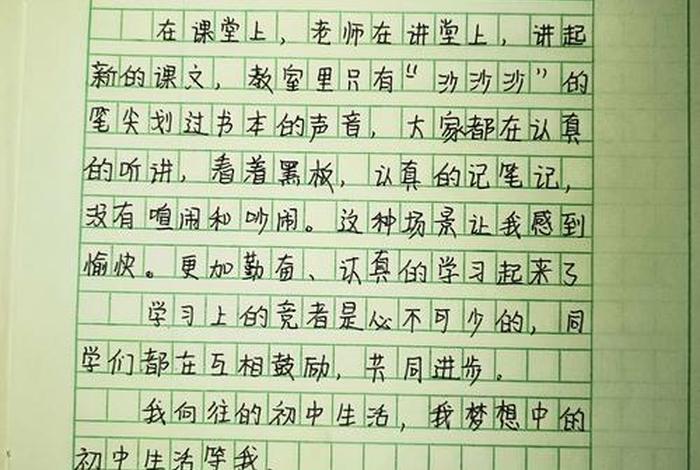 在课堂上，老师在讲堂上，讲起
新的课文，教室里只有“沙沙沙”的
笔尖划过书本的声音，大家都在认真
的听讲，看着黑板，认真的记笔记，
没有喧闹和吵闹。这种场景让我感到
愉快。更加勤奋、认真的学习起来了
学习上的竞者是必不可少的，同
学们都在互相鼓励，共同进步。
我向往的初中生活，我梦想中的
初中生活等我。